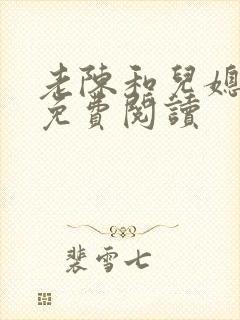 老陳和兒媳
免費閱讀
裴雪七